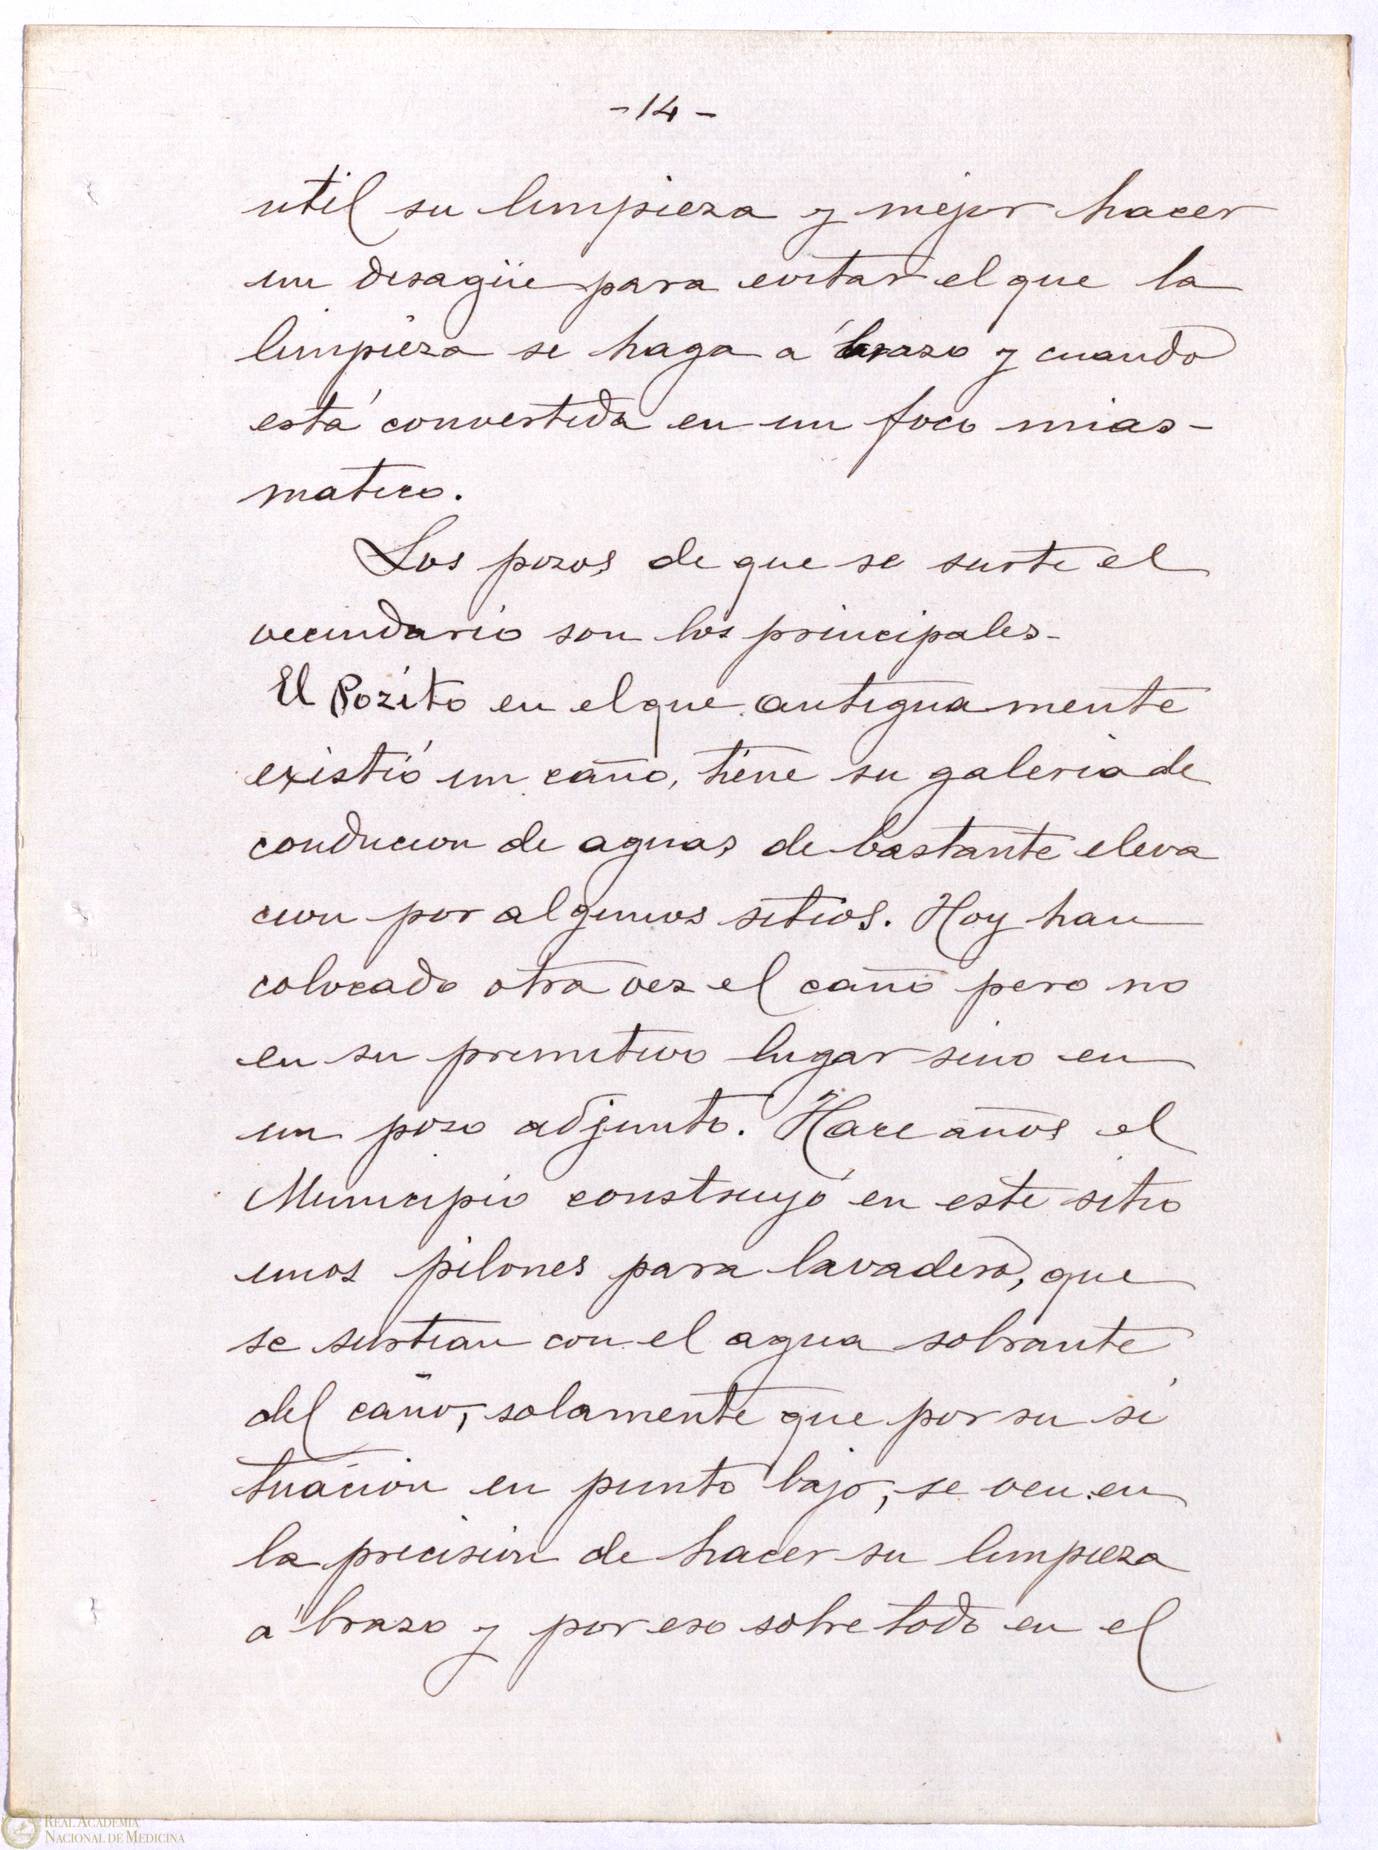 -14-
util su limpieza y mejor hacer
un desagüe para evitar el que la
limpieza se haga a brazo y cuando
está convertida en un foco mias-
matico.
Los pozos de que se surte el
vecindario son los principales-
El Pozito en el que antiguamente
existió un caño, tiene su galeria de
conducion de aguas de bastante eleva
cion por algunos sitios. Hoy han
colocado otra vez el caño pero no
en su primitivo lugar sino en
un pozo adjunto. Hace años el
Municipio construyó en este sitio
unos pilones para lavadero, que
se surtian con el agua sobrante
del caño, solamente que por su si
tuación en punto bajo, se ven en
la precision de hacer su limpieza
a brazo y por eso sobre todo en el
REAL ACADEMIA
NACIONAL DE MEDICINA